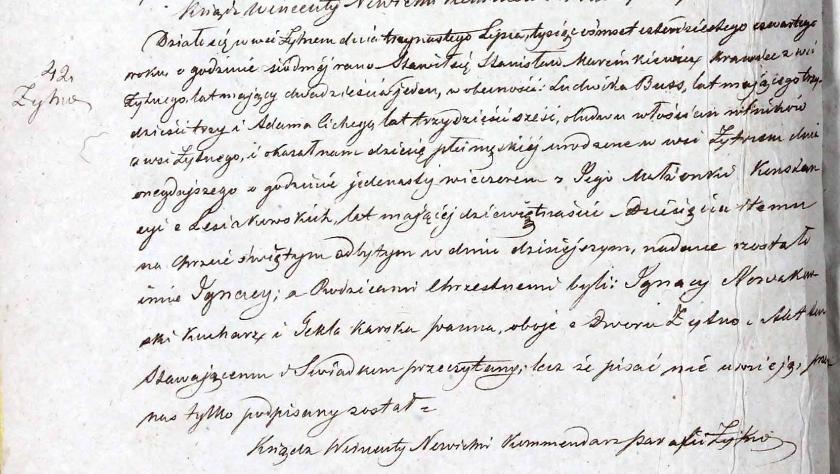 Ksiądz Wincenty Newicki
42.
Żytno
Działo się w wsi Żytnem dnia trzynastego Lipca, tysiąc ośmset czterdziestego czwartego
roku o godzinie siódmej rano Stawił się Stanisław Marcinkiewicz Krawiec z wsi
Żytnego, lat mający dwadzieścia jeden, w obecności: Ludwika Buss, lat mającego trzy-
dzieści trzy i Adama Cichego, lat trzydzieści sześć, obudwu włościan rolników
z wsi Żytnego, i okazał nam dziecię płci męzkiej urodzone w wsi Żytnem dnia
onegdajszego o godzinie jedenasty wieczorem z Jego Małżonki Konstan
cyi z Lesiakowskich, lat mającej dziewiętnaście. Dziecięciu temu
na chrzcie świętym odbytym w dniu dzisiejszym, nadane zostało
imie Ignacy; a Rodzicami Chrzestnemi byli: Ignacy Nowakow-
ski Kucharz i Tekla Karska panna, oboje z Dworu Żytno. Akt ten
Stawającemu i Świadkom przeczytany, lecz że pisać nie umieją, przez
nas tylko podpisany został =
Ksiądz Wincenty Newicki Kommendarz parafii Żytno